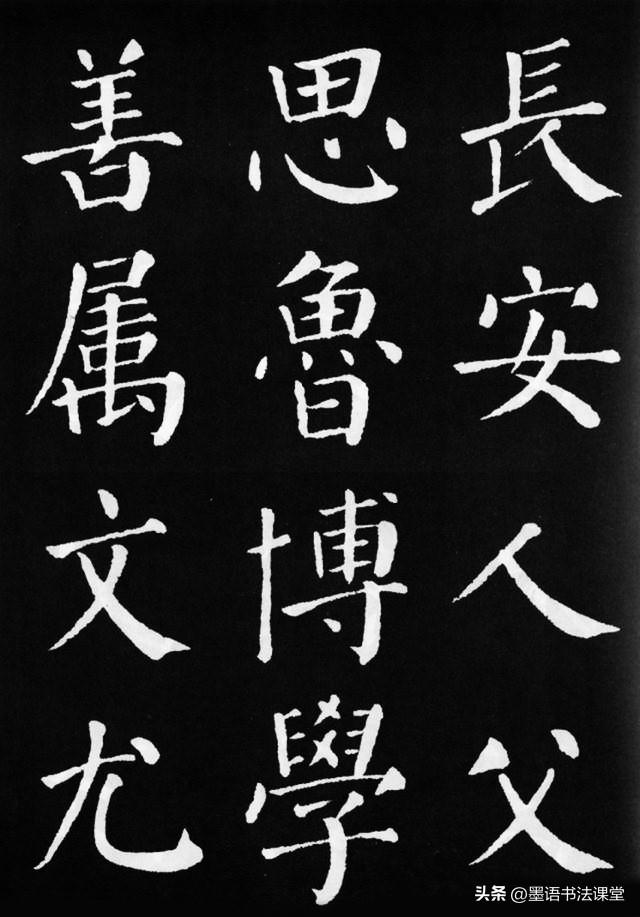 長安人父
思魯博學
善属文尤
头条@墨语书法课堂